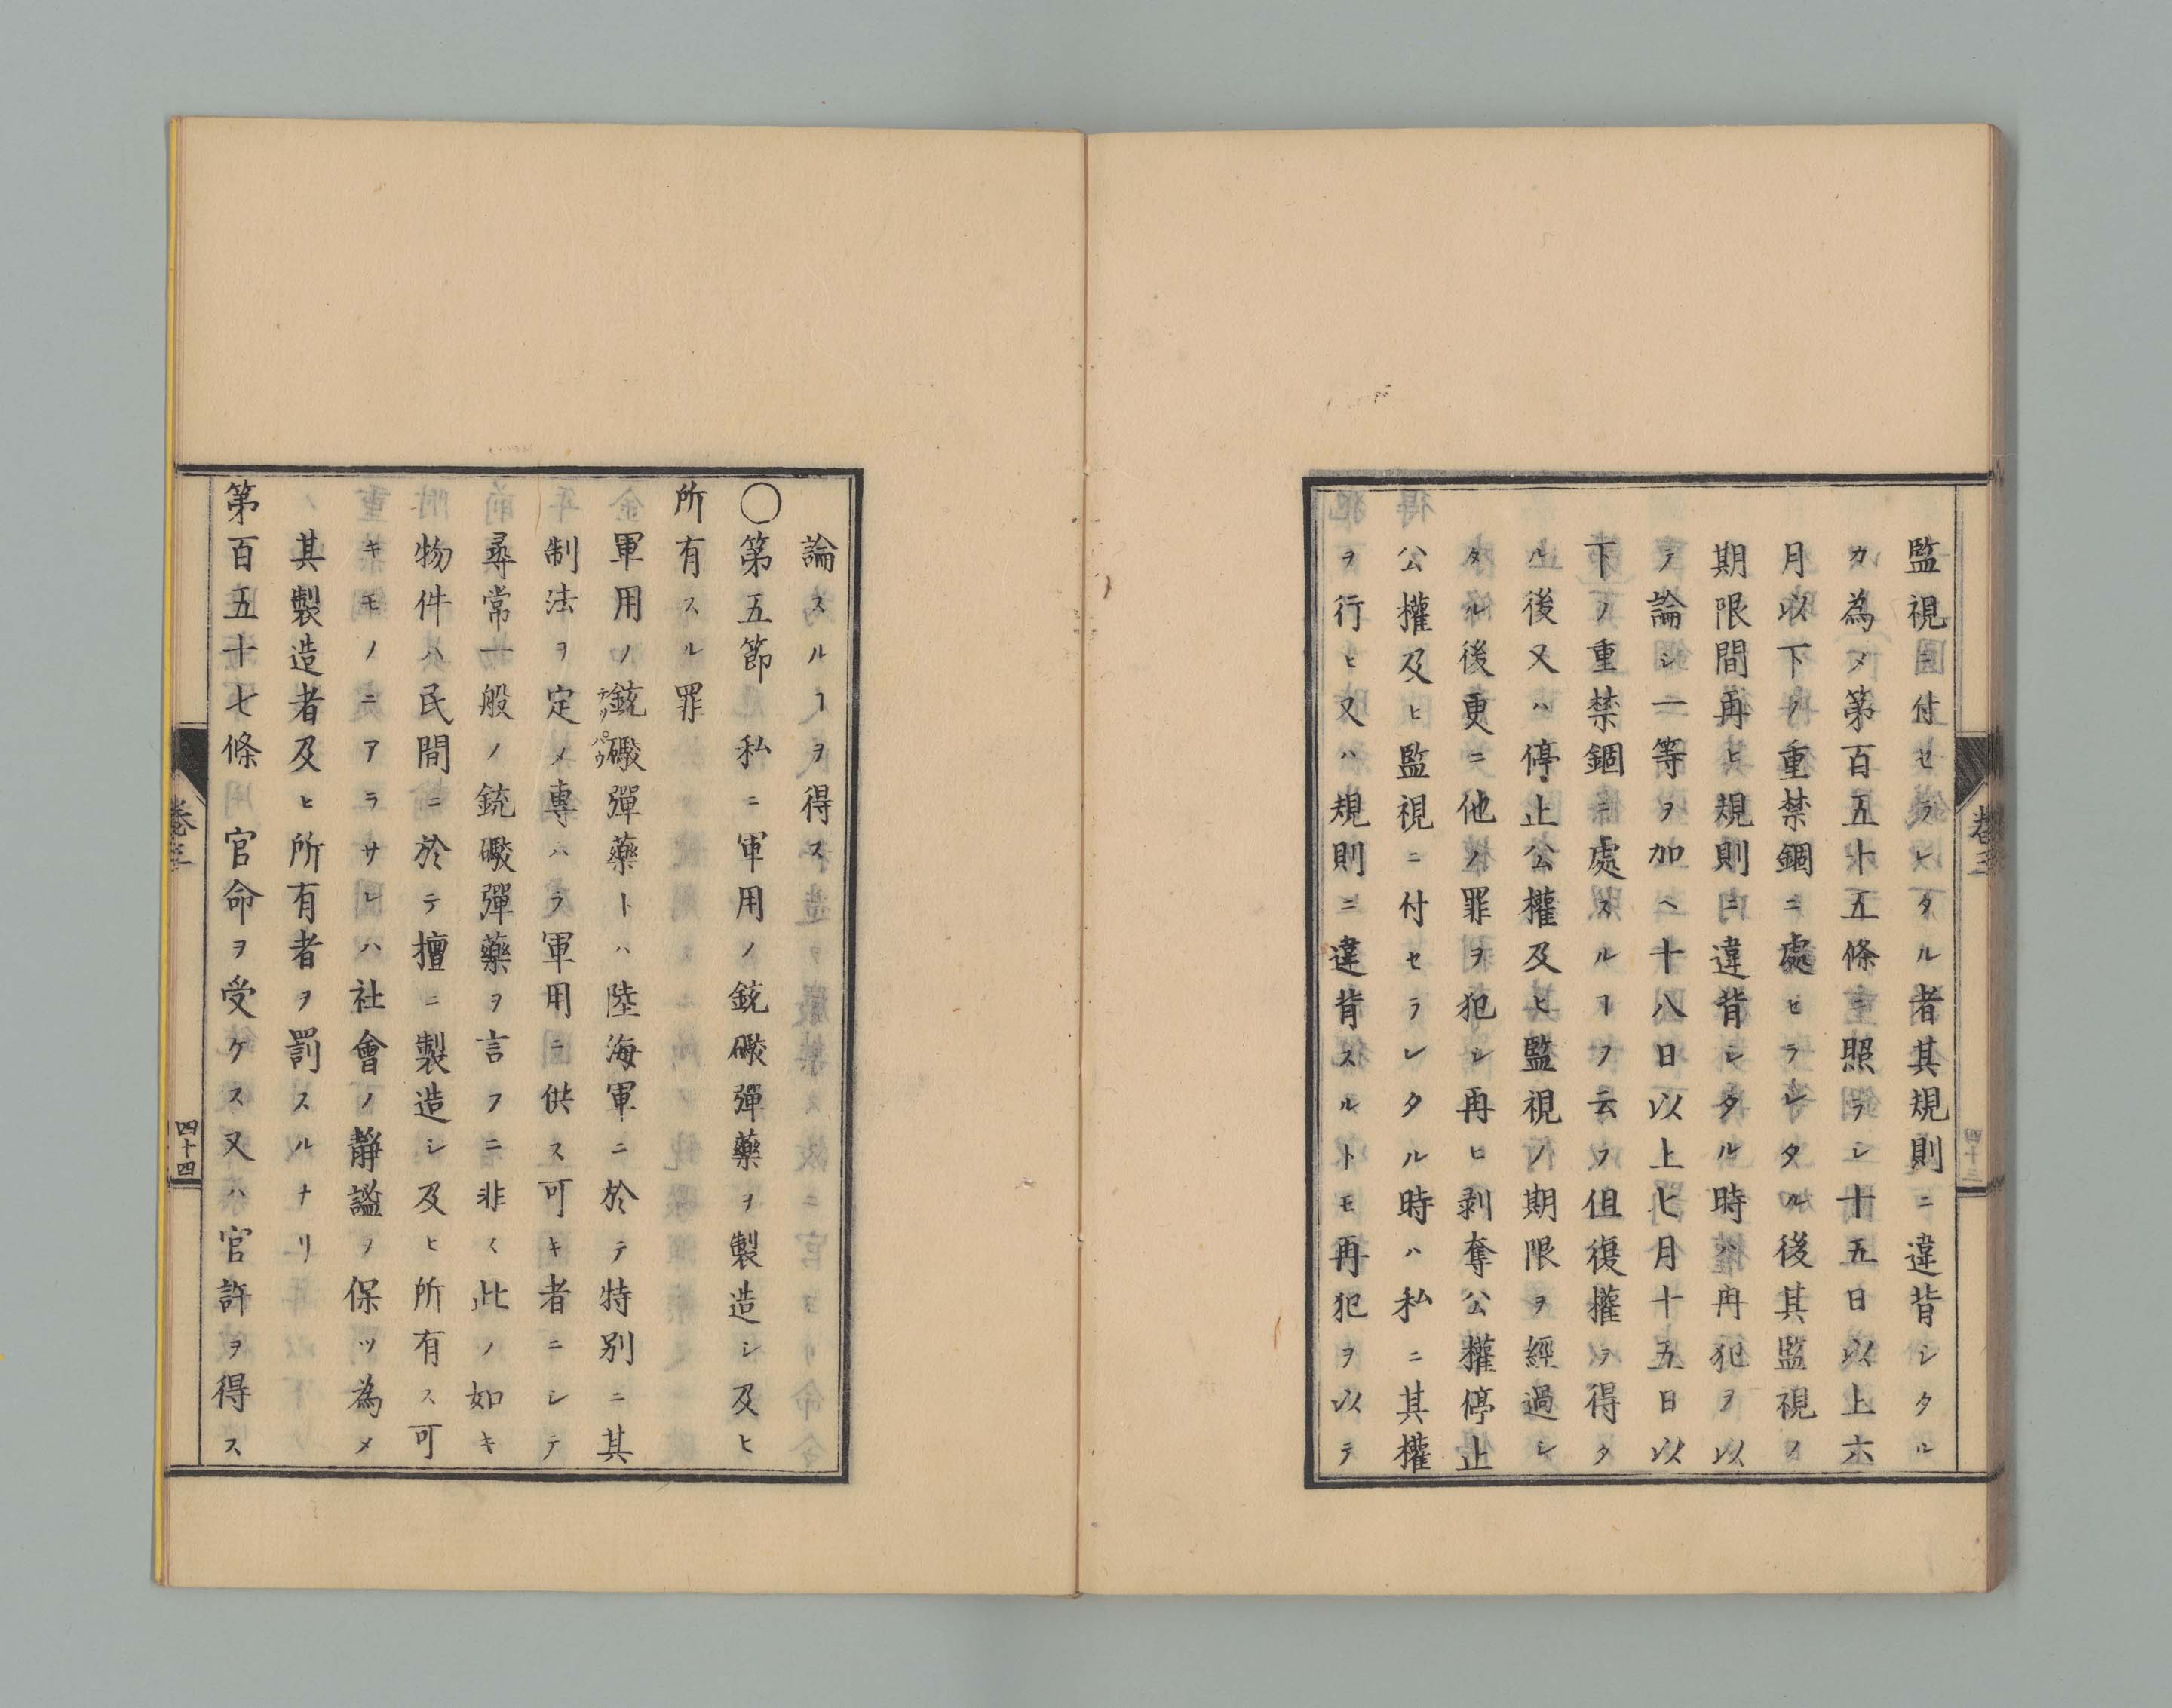 監視ニ付セラレタル者其規則ニ違背シタル
カ為メ第百五十五條ニ照ラシ十五日以上六
月以下ノ重禁錮ニ處セラレタル後其監視ノ
期限間再ヒ規則ニ違背シタル時ハ再犯ヲ以
テ論シ一等ヲ加ヘ十八日以上七月十五日以
下ノ重禁錮ニ處スルヿヲ云フ但復權ヲ得タ
ル後又ハ停止公權及ヒ監視ノ期限ヲ經過シ
タル後更ニ他ノ罪ヲ犯シ再ヒ剥奪公權停止
公權及ヒ監視ニ付セラレタル時ハ私ニ其權
ヲ行ヒ又ハ規則ニ違背スルトモ再犯ヲ以テ
卷三
論スルヿヲ得ス
〇第五節 私ニ軍用ノ銃礮彈藥ヲ製造シ及ヒ
所有スル罪
軍用ノ銃礮彈藥トハ陸海軍ニ於テ特別ニ其
テツパウ
制法ヲ定メ專ハラ軍用ニ供ス可キ者ニシテ
尋常一般ノ銃礮彈藥ヲ言フニ非ス此ノ如キ
物件ハ民間ニ於テ擅ニ製造シ及ヒ所有ス可
キモノニアラサレハ社會ノ靜謐ヲ保ツ為メ
其製造者及ヒ所有者ヲ罰スルナリ
第百五十七條 官命ヲ受ケス又ハ官許ヲ得ス
卷三
四十四